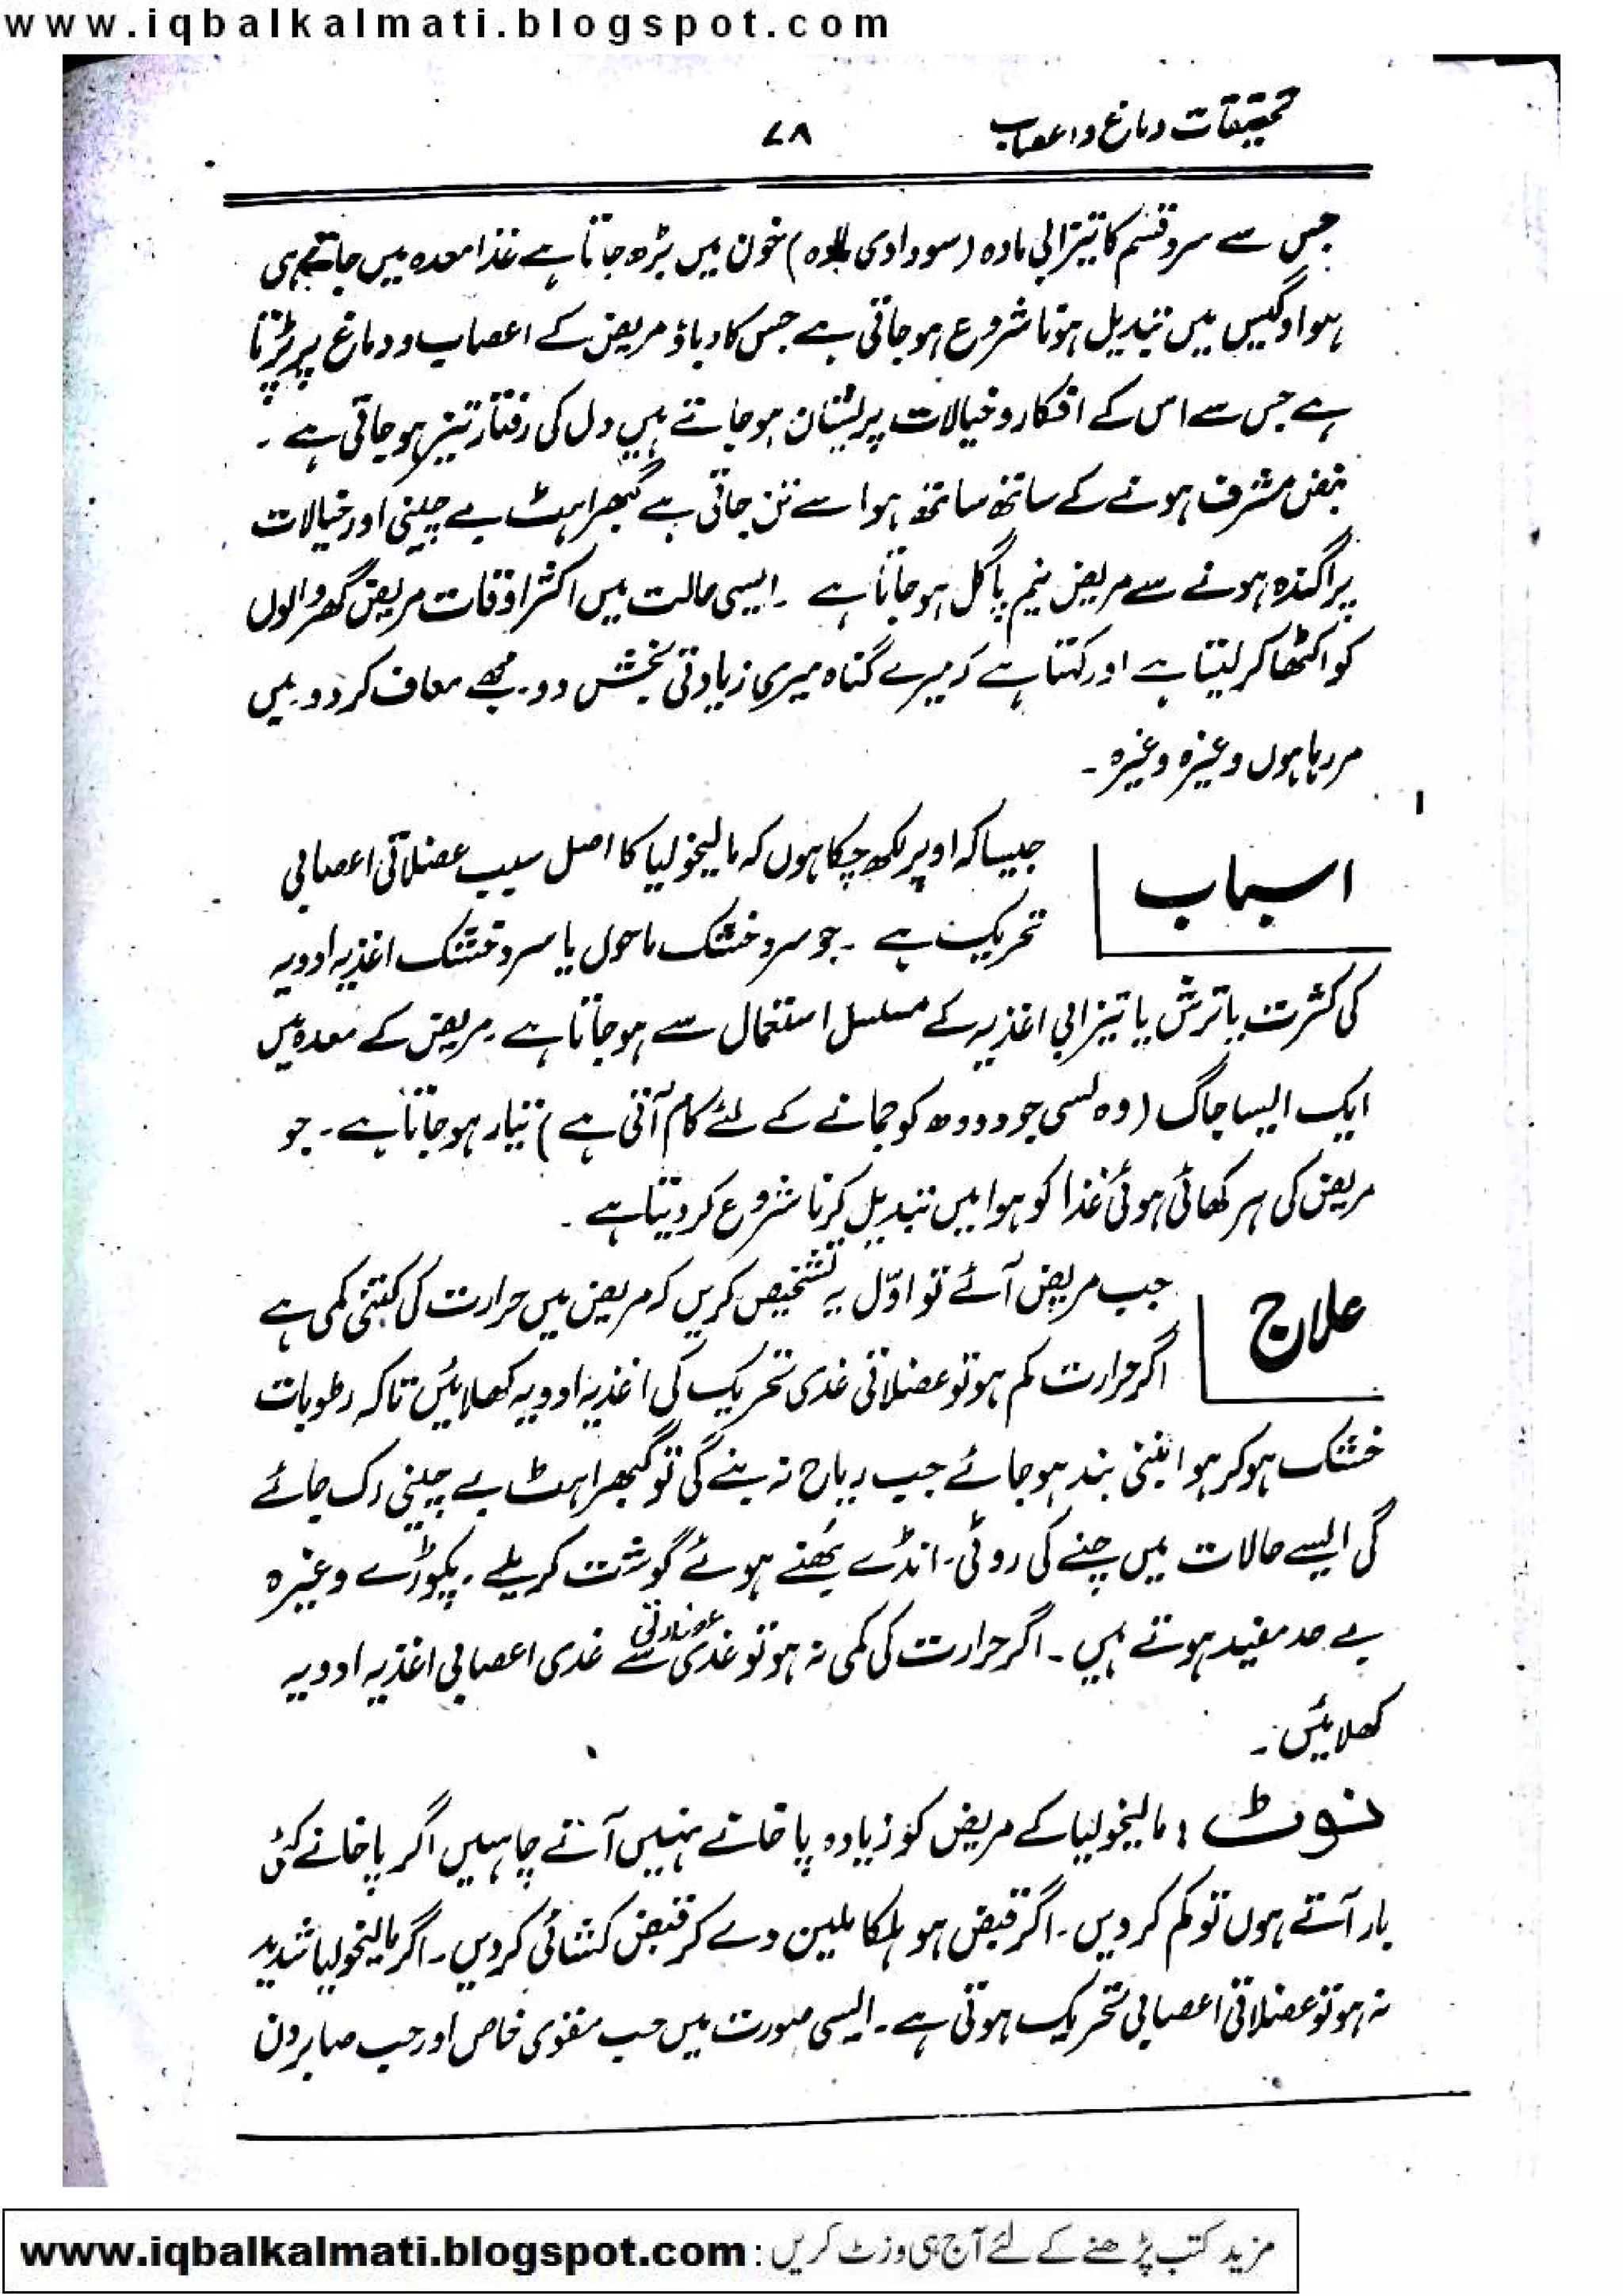 www.iqbalkalmati.blogspot.com
تحقیقات دماغ و اعصاب
۷۸
جس سے سرد قسم کا تیزابی مادہ (سوداوی مادہ) خون میں بڑھ جاتا ہے غذا معدہ میں جاتے ہی
ہوا و گیس میں تبدیل ہونا شروع ہو جاتی ہے جس کا دباؤ مریض کے اعصاب و دماغ پر پڑتا
ہے جس سے اس کے افکار و خیالات پریشان ہو جاتے ہیں دل کی رفتار تیز ہو جاتی ہے ۔
نبض مشرف ہونے کے ساتھ ساتھ ہوا سے تن جاتی ہے گھبراہٹ بے چینی اور خیالات
پراگندہ ہونے سے مریض نیم پاگل ہو جاتا ہے ۔ ایسی حالت میں اکثر اوقات مریض گھر والوں
کو اکٹھا کر لیتا ہے اور کہتا ہے کہ میرے گناہ میری زیادتی بخش دو۔ مجھے معاف کر دو۔ میں
مر رہا ہوں وغیرہ وغیرہ ۔
اسباب
جیسا کہ اوپر لکھ چکا ہوں کہ مالیخولیا کا اصل سبب عضلاتی اعصابی
تحریک ہے ۔ جو سرد خشک ماحول یا سرد خشک اغذیہ ادویہ
کی کثرت یا ترش یا تیزابی اغذیہ کے مسلسل استعمال سے ہو جاتا ہے ۔ مریض کے معدہ میں
ایک ایسا جاگ (وہ لسی جو دودھ کو جمانے کے لئے کام آتی ہے) تیار ہو جاتا ہے ۔ جو
مریض کی ہر کھائی ہوئی غذا کو ہوا میں تبدیل کرنا شروع کر دیتا ہے ۔
علاج
جب مریض آئے تو اوّل یہ تشخیص کریں کہ مریض میں حرارت کی کتنی کمی ہے
اگر حرارت کم ہو تو عضلاتی غدی تحریک کی اغذیہ ادویہ کھلائیں تاکہ رطوبات
خشک ہو کر ہوا بننی بند ہو جائے جب ریاح نہ بنے گی تو گھبراہٹ بے چینی رک جائے
گی ایسے حالات میں چنے کی روٹی ۔ انڈے بھنے ہوئے گوشت کریلے ۔ پکوڑے وغیرہ
بے حد مفید ہوتے ہیں ۔ اگر حرارت کی کمی نہ ہو تو غدی عضلاتی سے غدی اعصابی اغذیہ ادویہ
کھلائیں ۔
نوٹ : مالیخولیا کے مریض کو زیادہ پاخانے نہیں آنے چاہئیں اگر پاخانے کئی
بار آتے ہوں تو کم کر دیں ۔ اگر قبض ہو ہلکا ملین دے کر قبض کشائی کر دیں ۔ اگر مالیخولیا شدید
نہ ہو تو عضلاتی اعصابی تحریک ہوتی ہے ۔ ایسی صورت میں حب مقوی خاص اور حب صابر دن
مزید کتب پڑھنے کے لئے آج ہی وزٹ کریں : www.iqbalkalmati.blogspot.com